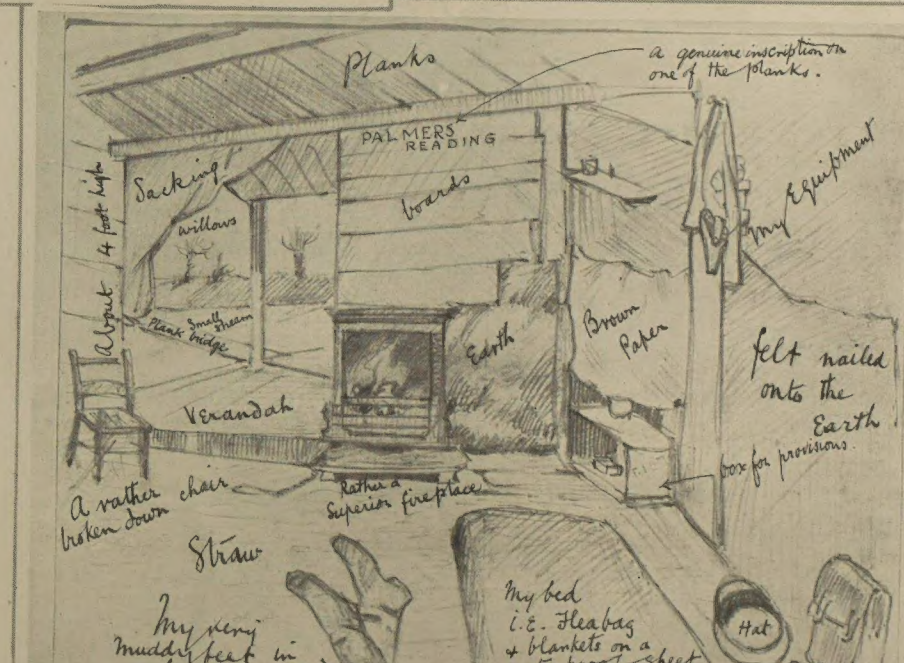 Planks
a genuine inscription on
one of the planks.
PALMERS
READING
Sacking
boards
willows
About 4 foot high
My Equipment
Plank
bridge
Small
stream
Earth
Brown
Paper
felt nailed
onto the
Earth
Verandah
box for provisions.
A rather
broken down chair
Rather a
Superior fireplace
Straw
My very
muddy feet in
My bed
i.e. Fleabag
& blankets on a
sheet
Hat